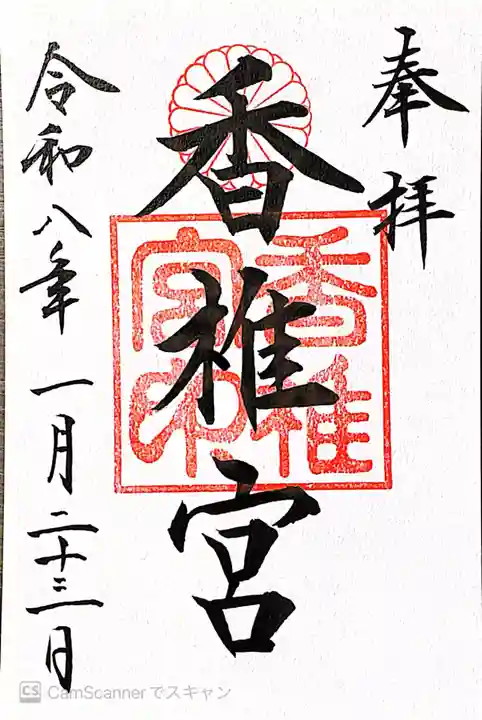 奉拝
香椎宮
香椎宮印
令和八年一月二十三日
CS CamScannerでスキャン